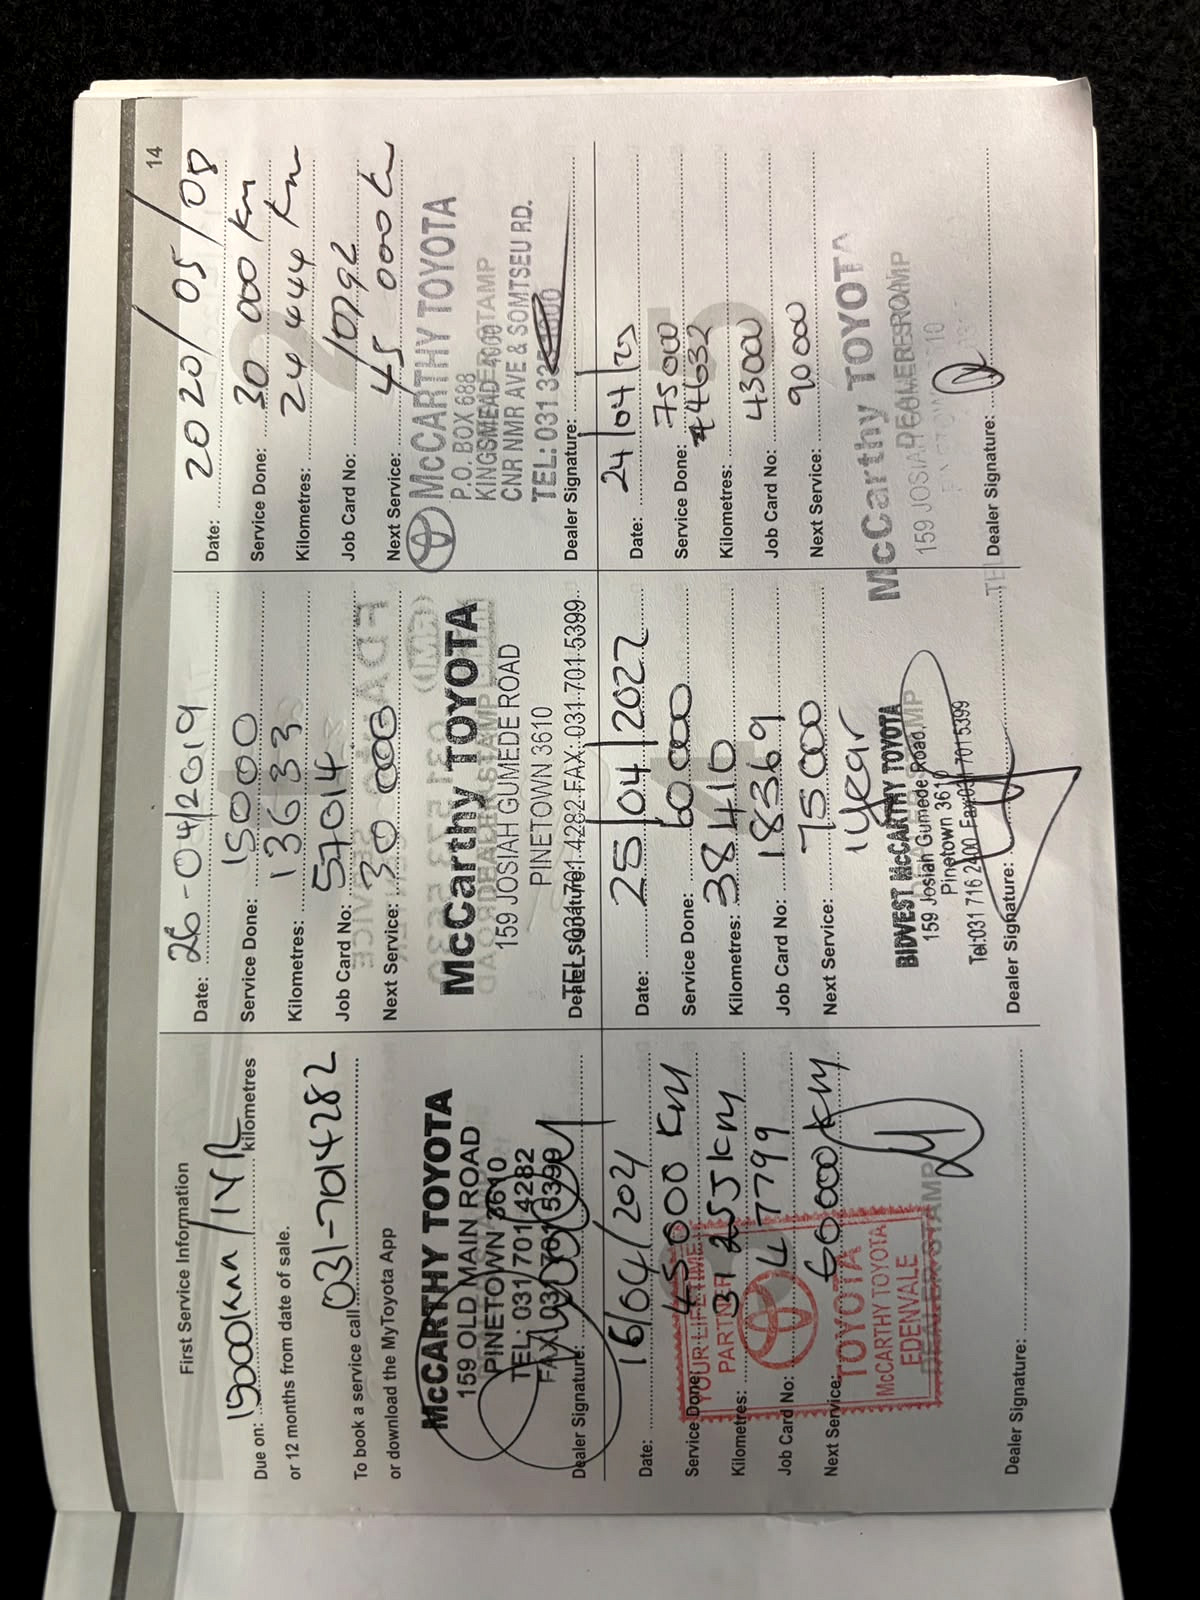 14
First Service Information
Due on: 15000km/1YR kilometres
or 12 months from date of sale.
To book a service call 031-7014282
or download the MyToyota App
McCARTHY TOYOTA
159 OLD MAIN ROAD
PINETOWN 3610
TEL: 031 701 4282
FAX: 031 701 5399
Dealer Signature:
Date: 26-04/2019
Service Done: 15000
Kilometres: 13633
Job Card No: 57014
Next Service: 30 000
McCarthy TOYOTA
159 JOSIAH GUMEDE ROAD
PINETOWN 3610
TEL: 031 701 4282 FAX: 031 701 5399
Dealer Signature:
Date: 2020/05/08
Service Done: 30 000 km
Kilometres: 24 444 km
Job Card No: 10792
Next Service: 45 000 k
McCARTHY TOYOTA
P.O. BOX 688
KINGSMEAD 4000
CNR NMR AVE & SOMTSEU RD.
TEL: 031 32
Dealer Signature:
Date: 16/04/2021
Service Done: 45000 KM
Kilometres: KM
Job Card No: 47799
Next Service: 60000 KM
YOUR LIFETIME
PARTNER
TOYOTA
McCARTHY TOYOTA
EDENVALE
DEALER STAMP
Dealer Signature:
Date: 25/04/2022
Service Done: 60000
Kilometres: 38410
Job Card No: 18369
Next Service: 75000
1 Year
BIDVEST McCARTHY TOYOTA
159 Josiah Gumede Road,
Pinetown 3610
Tel:031 716 2400 Fax:031 701 5399
Dealer Signature:
Date: 24/04/25
Service Done: 75000
Kilometres: 44632
Job Card No: 43000
Next Service: 90000
McCarthy TOYOTA
159 JOSIAH
DEALER STAMP
Dealer Signature: